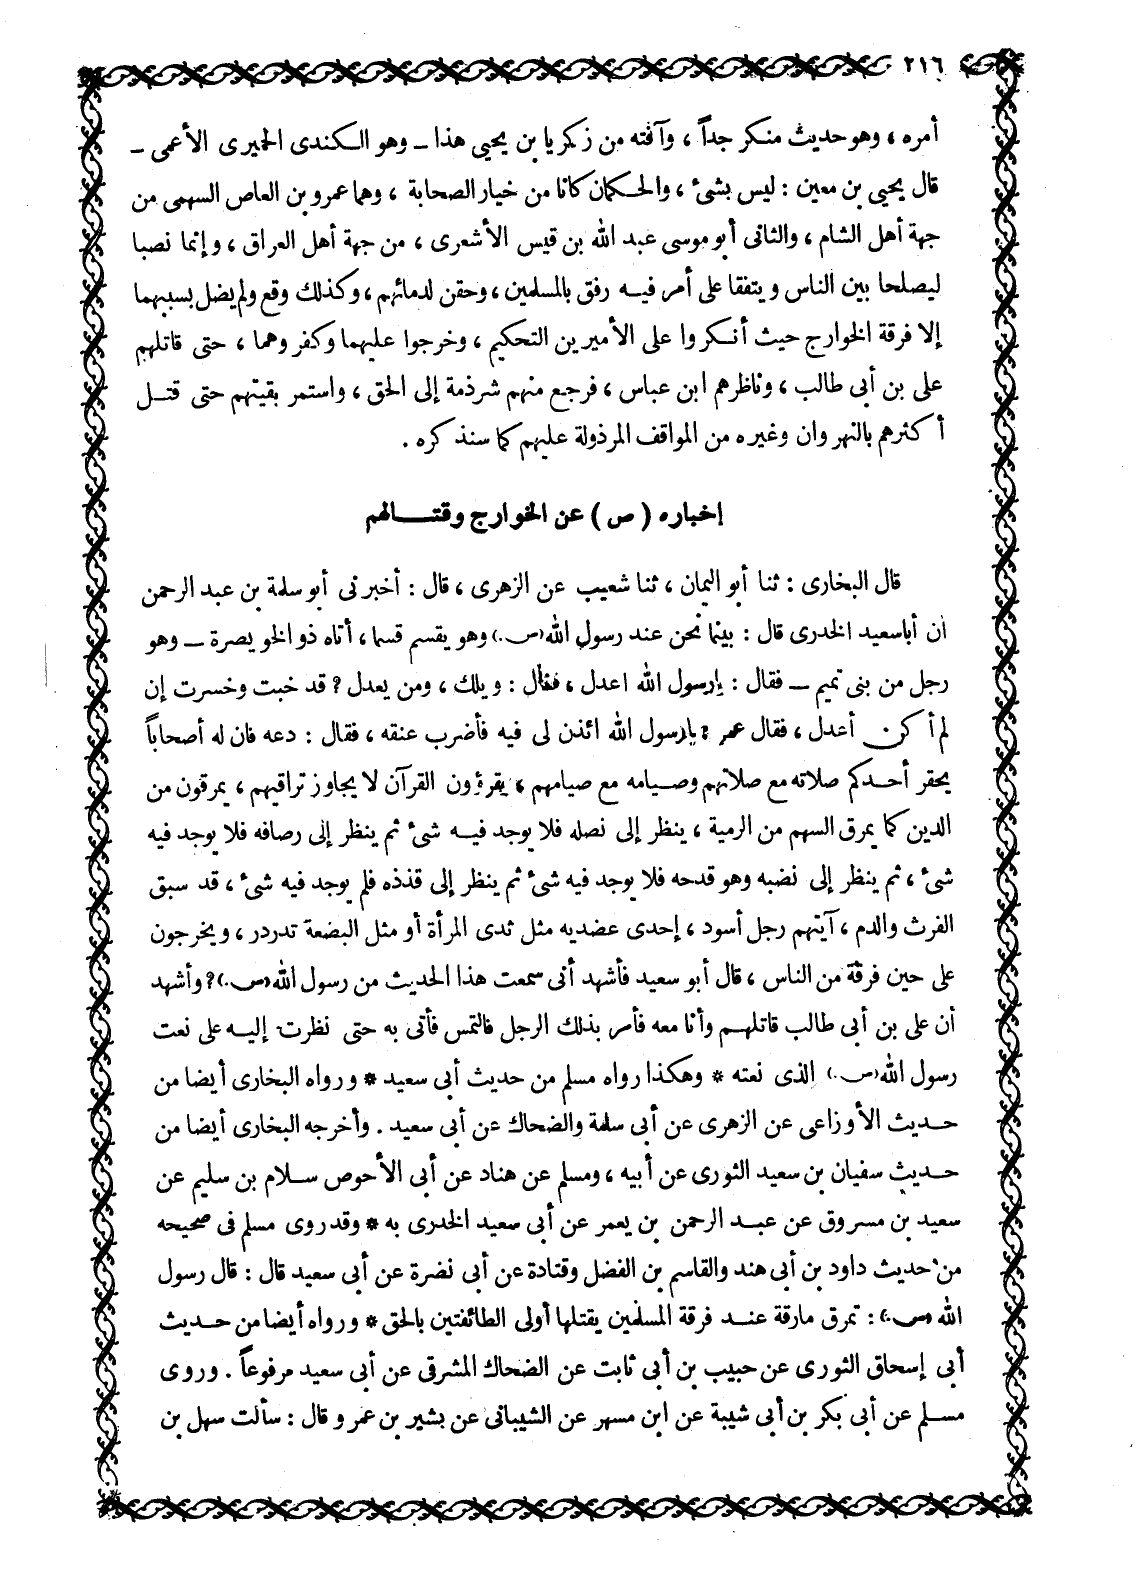 ٢١٦
أمره ، وهو حديث منكر جداً ، وآفته من زكريا بن يحيى هذا ــ وهو الكندى الحميرى الأعمى ــ
قال يحيى بن معين : ليس بشئ ، والحكمان كانا من خيار الصحابة ، وهما عمرو بن العاص السهمى من
جهة أهل الشام ، والثانى أبو موسى عبد الله بن قيس الأشعرى ، من جهة أهل العراق ، وإنما نصبا
ليصلحا بين الناس ويتفقا على أمر فيه رفق بالمسلمين ، وحقن لدمائهم ، وكذلك وقع ولم يضل بسببهما
إلا فرقة الخوارج حيث أنكروا على الأميرين التحكيم ، وخرجوا عليهما وكفروهما ، حتى قاتلهم
على بن أبى طالب ، وناظرهم ابن عباس ، فرجع منهم شرذمة إلى الحق ، واستمر بقيتهم حتى قتل
أكثرهم بالنهروان وغيره من المواقف المرذولة عليهم كما سنذكره .
إخباره ( ص ) عن الخوارج وقتالهم
قال البخارى : ثنا أبو اليمان ، ثنا شعيب عن الزهرى ، قال : أخبرنى أبو سلمة بن عبد الرحمن
أن أباسعيد الخدرى قال : بينما نحن عند رسول الله (ص.) وهو يقسم قسما ، أتاه ذو الخويصرة ــ وهو
رجل من بنى تميم ــ فقال : يارسول الله اعدل ، فقال : ويلك ، ومن يعدل ? قد خبت وخسرت إن
لم أكن أعدل ، فقال عمر : يارسول الله ائذن لى فيه فأضرب عنقه ، فقال : دعه فان له أصحاباً
يحقر أحدكم صلاته مع صلاتهم وصيامه مع صيامهم ، يقرؤون القرآن لا يجاوز تراقيهم ، يمرقون من
الدين كما يمرق السهم من الرمية ، ينظر إلى نصله فلا يوجد فيه شئ ثم ينظر إلى رصافه فلا يوجد فيه
شئ ، ثم ينظر إلى نضبه وهو قدحه فلا يوجد فيه شئ ثم ينظر إلى قذذه فلم يوجد فيه شئ ، قد سبق
الفرث والدم ، آيتهم رجل أسود ، إحدى عضديه مثل ثدى المرأة أو مثل البضعة تدردر ، ويخرجون
على حين فرقة من الناس ، قال أبو سعيد فأشهد أنى سمعت هذا الحديث من رسول الله (ص.) ? وأشهد
أن على بن أبى طالب قاتلهم وأنا معه فأمر بذلك الرجل فالتمس فأتى به حتى نظرت إليه على نعت
رسول الله (ص.) الذى نعته * وهكذا رواه مسلم من حديث أبى سعيد * ورواه البخارى أيضا من
حديث الأوزاعى عن الزهرى عن أبى سلمة والضحاك عن أبى سعيد . وأخرجه البخارى أيضا من
حديث سفيان بن سعيد الثورى عن أبيه ، ومسلم عن هناد عن أبى الأحوص سلام بن سليم عن
سعيد بن مسروق عن عبد الرحمن بن يعمر عن أبى سعيد الخدرى به * وقد روى مسلم فى صحيحه
من حديث داود بن أبى هند والقاسم بن الفضل وقتادة عن أبى نضرة عن أبى سعيد قال : قال رسول
الله (ص.) : تمرق مارقة عند فرقة المسلمين يقتلها أولى الطائفتين بالحق * ورواه أيضا من حديث
أبى إسحاق الثورى عن حبيب بن أبى ثابت عن الضحاك المشرقى عن أبى سعيد مرفوعاً . وروى
مسلم عن أبى بكر بن أبى شيبة عن ابن مسهر عن الشيبانى عن بشير بن عمرو قال : سألت سهل بن